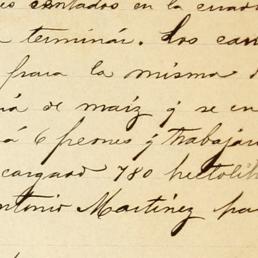 contados en la cuad
terminár. Los car
para la misma d
de maíz y se en
á 6 peones y trabajár
cargaro 780 hectolit
ntonio Martínez pa